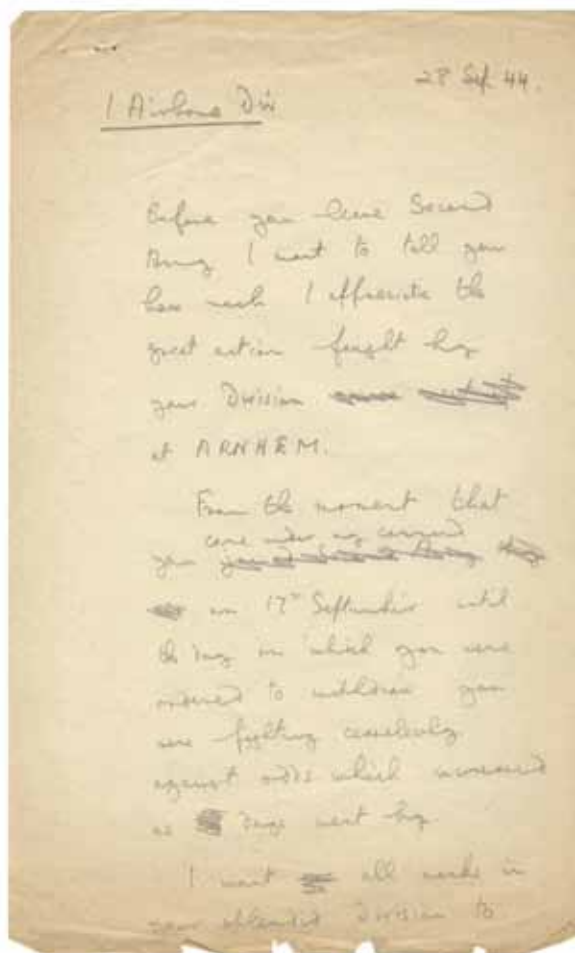 28 Sep 44.
1 Airborne Div
Before you leave Second
Army I want to tell you
how much I appreciate the
great action fought by
your Division
at ARNHEM.
From the moment that
came under my command
you
on 17th September until
the day on which you were
ordered to withdraw you
were fighting ceaselessly
against odds which increased
as days went by.
I want all ranks in
your splendid Division to